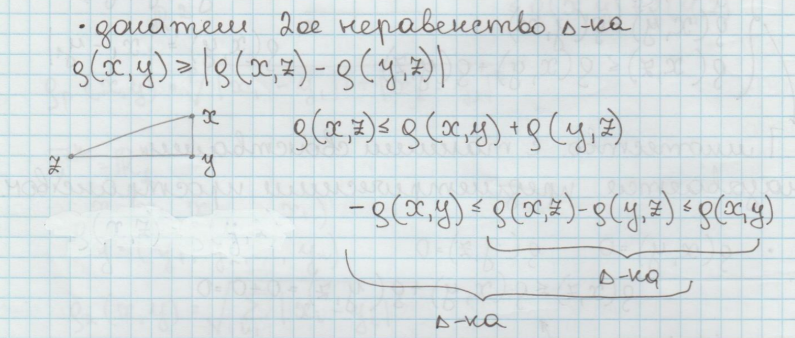 · докажем 2ое неравенство Δ-ка
ρ(x,y) ≥ |ρ(x,z) - ρ(y,z)|
x
z y
ρ(x,z) ≤ ρ(x,y) + ρ(y,z)
-ρ(x,y) ≤ ρ(x,z) - ρ(y,z) ≤ ρ(x,y)
Δ-ка
Δ-ка